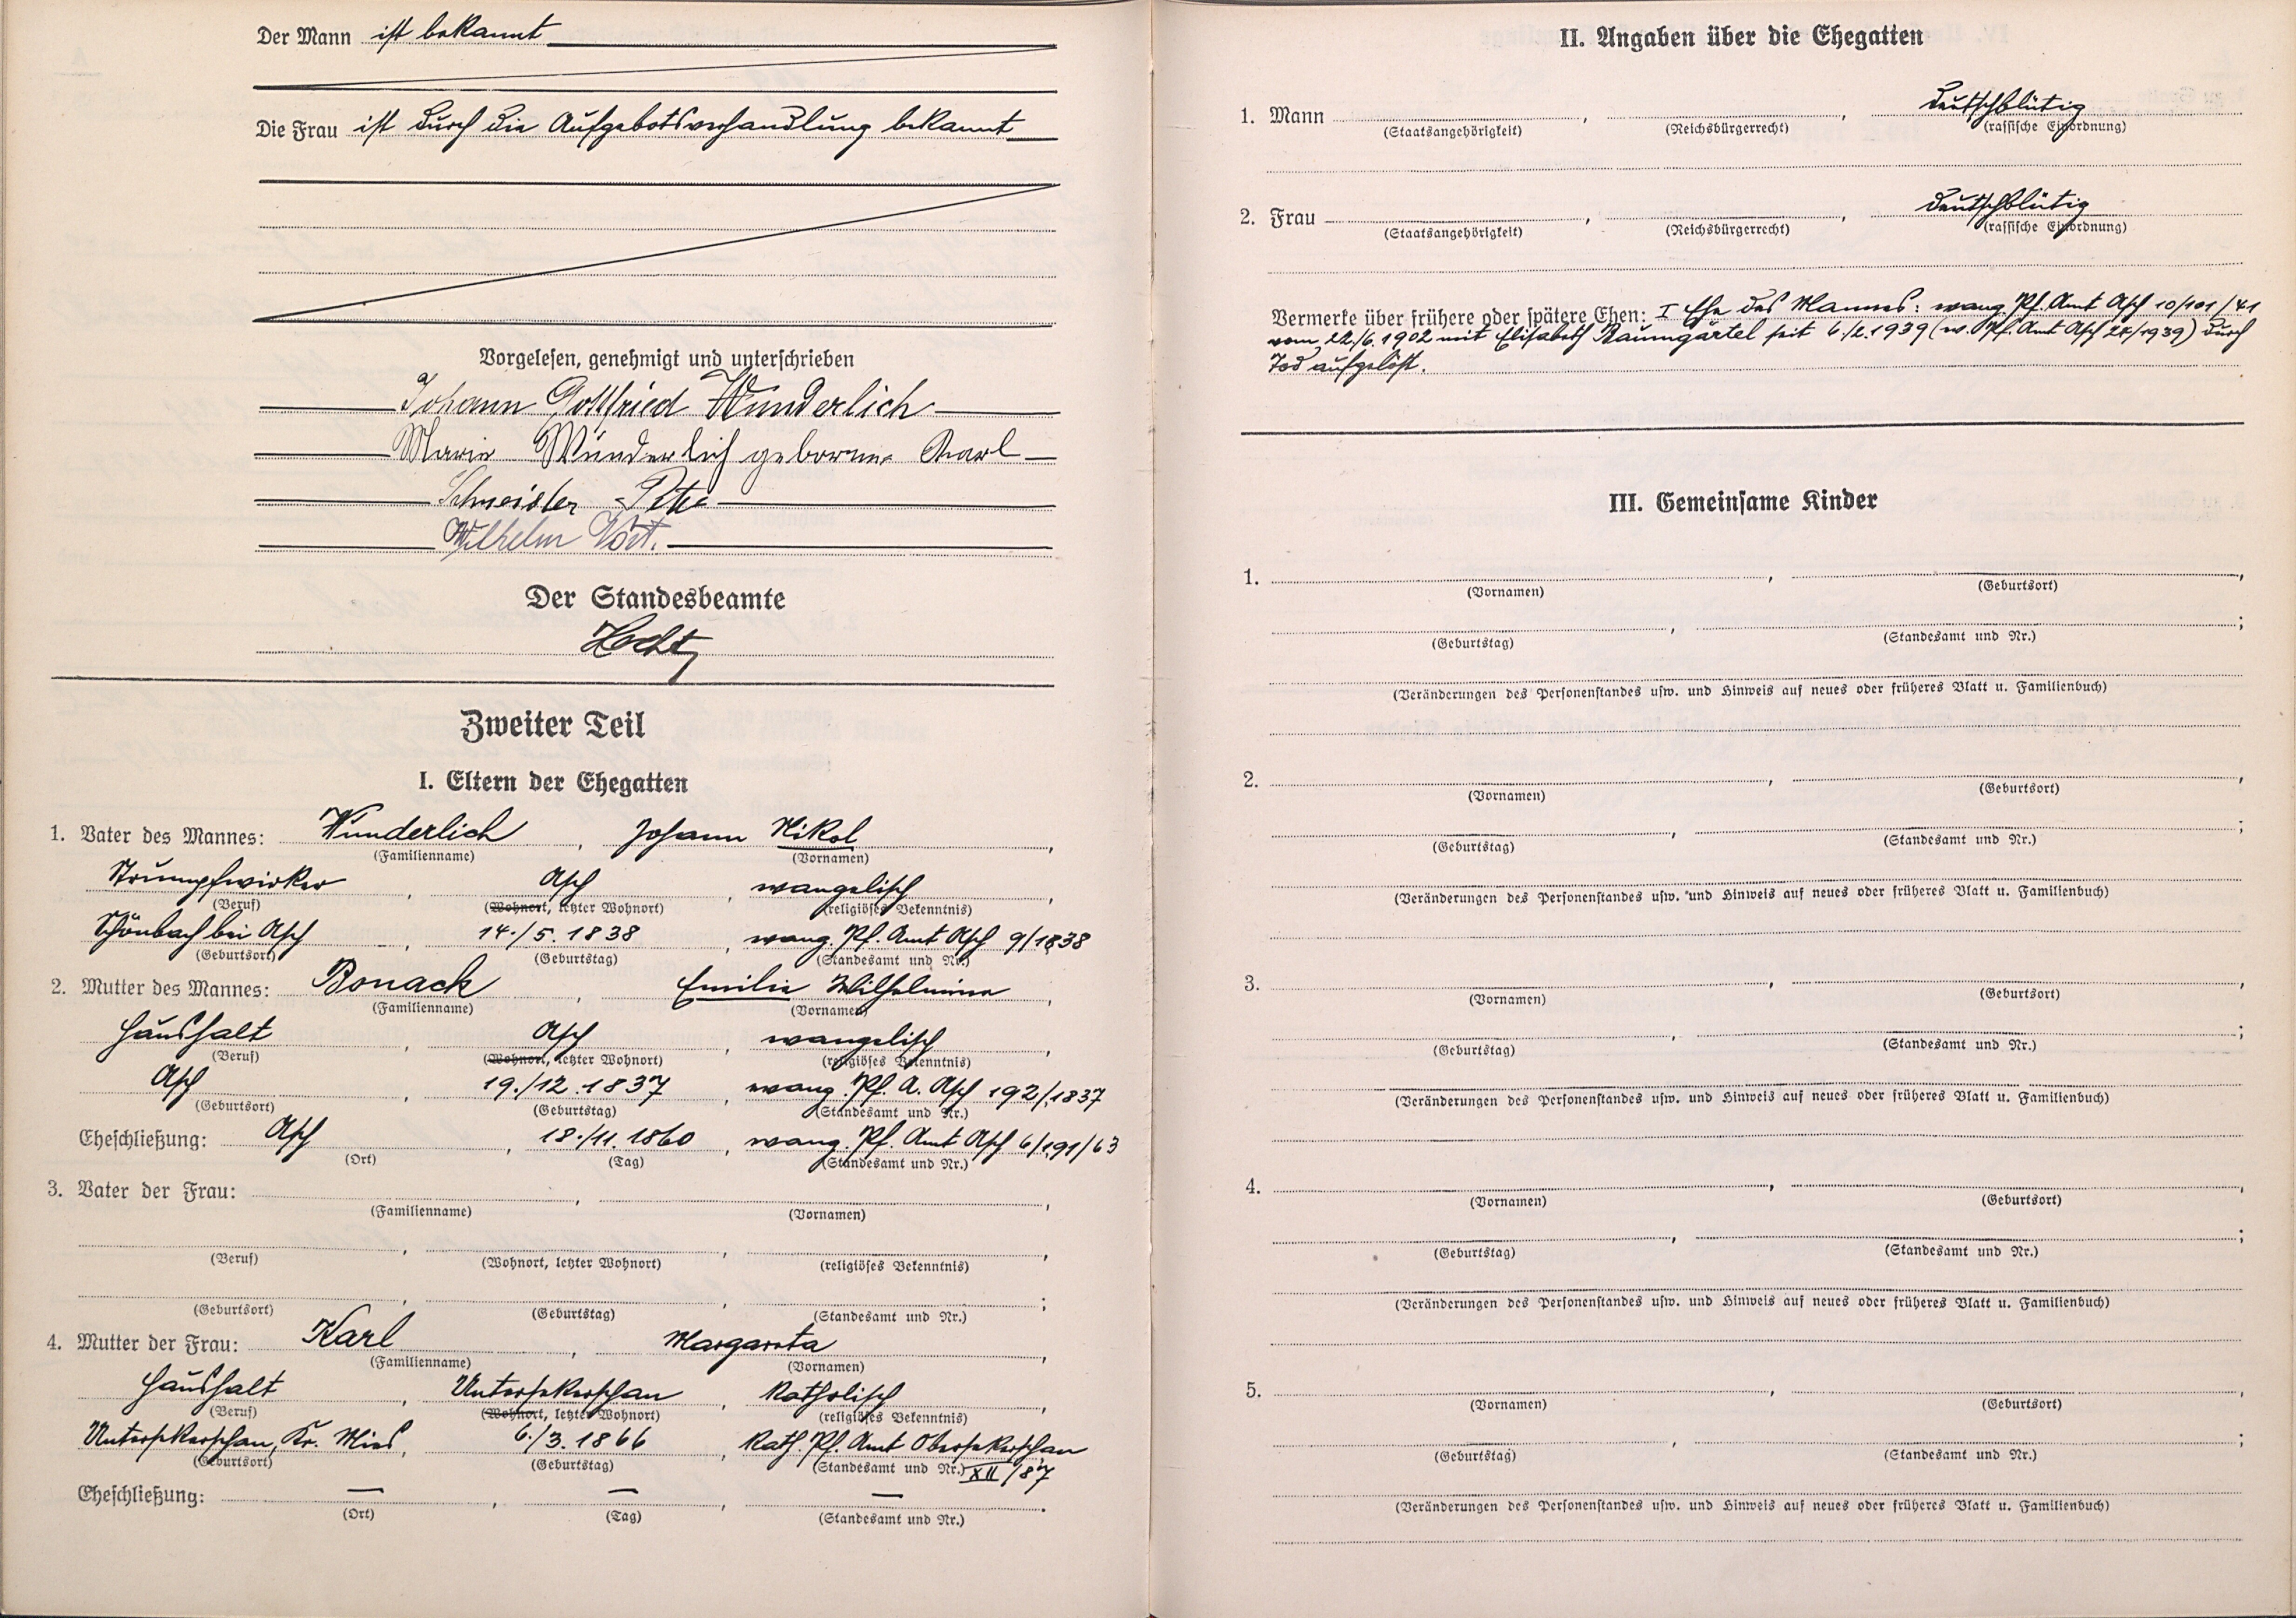 Der Mann ist bekannt
Die Frau ist durch die Aufgebotsverhandlung bekannt
Vorgelesen, genehmigt und unterschrieben
Johann Gottfried Wunderlich
Marie Wunderlich geborene Karl
Schneider Peter
Wilhelm
Der Standesbeamte
Zweiter Teil
I. Eltern der Ehegatten
1. Vater des Mannes: Wunderlich, Johann Nikol,
(Familienname) (Vornamen)
Strumpfwirker, Asch, evangelisch,
(Beruf) (Wohnort, letzter Wohnort) (religiöses Bekenntnis)
Schönbach bei Asch, 14./5. 1838, evang. Pf. Amt Asch 9/1838
(Geburtsort) (Geburtstag) (Standesamt und Nr.)
2. Mutter des Mannes: Bonack, Emilie Wilhelmine,
(Familienname) (Vornamen)
Haushalt, Asch, evangelisch,
(Beruf) (Wohnort, letzter Wohnort) (religiöses Bekenntnis)
Asch, 19./12. 1837, evang. Pf. A. Asch 192/1837
(Geburtsort) (Geburtstag) (Standesamt und Nr.)
Eheschließung: Asch, 18./11. 1860, evang. Pf. Amt Asch 6/191/63
(Ort) (Tag) (Standesamt und Nr.)
3. Vater der Frau: , ,
(Familienname) (Vornamen)
(Beruf) (Wohnort, letzter Wohnort) (religiöses Bekenntnis)
(Geburtsort) (Geburtstag) (Standesamt und Nr.)
4. Mutter der Frau: Karl, Margareta,
(Familienname) (Vornamen)
Haushalt, Untersekerschan, katholisch,
(Beruf) (Wohnort, letzter Wohnort) (religiöses Bekenntnis)
Untersekerschan, Kr. Mies, 6./3. 1866, kath. Pf. Amt Obersekerschan
(Geburtsort) (Geburtstag) (Standesamt und Nr.) XII/87
Eheschließung: —, —, —.
(Ort) (Tag) (Standesamt und Nr.)
II. Angaben über die Ehegatten
1. Mann , , deutschblütig
(Staatsangehörigkeit) (Reichsbürgerrecht) (rassische Einordnung)
2. Frau , , deutschblütig
(Staatsangehörigkeit) (Reichsbürgerrecht) (rassische Einordnung)
Vermerke über frühere oder spätere Ehen: I Ehe des Mannes: evang. Pf. Amt Asch 10/101/41
vom 22./6. 1902 mit Elisabeth Baumgärtel seit 6./2. 1939 (ev. Pf. Amt Asch /1939) durch
Tod aufgelöst.
III. Gemeinsame Kinder
1. , ,
(Vornamen) (Geburtsort)
, ;
(Geburtstag) (Standesamt und Nr.)
(Veränderungen des Personenstandes usw. und Hinweis auf neues oder früheres Blatt u. Familienbuch)
2. , ,
(Vornamen) (Geburtsort)
, ;
(Geburtstag) (Standesamt und Nr.)
(Veränderungen des Personenstandes usw. und Hinweis auf neues oder früheres Blatt u. Familienbuch)
3. , ,
(Vornamen) (Geburtsort)
, ;
(Geburtstag) (Standesamt und Nr.)
(Veränderungen des Personenstandes usw. und Hinweis auf neues oder früheres Blatt u. Familienbuch)
4. , ,
(Vornamen) (Geburtsort)
, ;
(Geburtstag) (Standesamt und Nr.)
(Veränderungen des Personenstandes usw. und Hinweis auf neues oder früheres Blatt u. Familienbuch)
5. , ,
(Vornamen) (Geburtsort)
, ;
(Geburtstag) (Standesamt und Nr.)
(Veränderungen des Personenstandes usw. und Hinweis auf neues oder früheres Blatt u. Familienbuch)